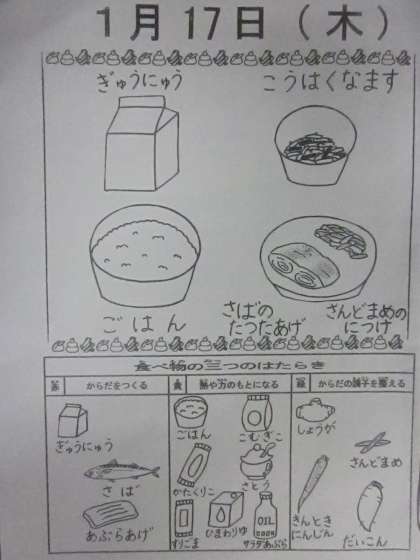 1月17日(木)
ぎゅうにゅう
こうはくなます
ごはん
さばの
たつたあげ
さんどまめの
につけ
食べ物の三つのはたらき
からだをつくる
熱や力のもとになる
からだの調子を整える
ぎゅうにゅう
さば
あぶらあげ
ごはん
こむぎこ
かたくりこ
さとう
すりごま
ひまわりゆ
OIL
サラダあぶら
しょうが
さんどまめ
きんとき
にんじん
だいこん